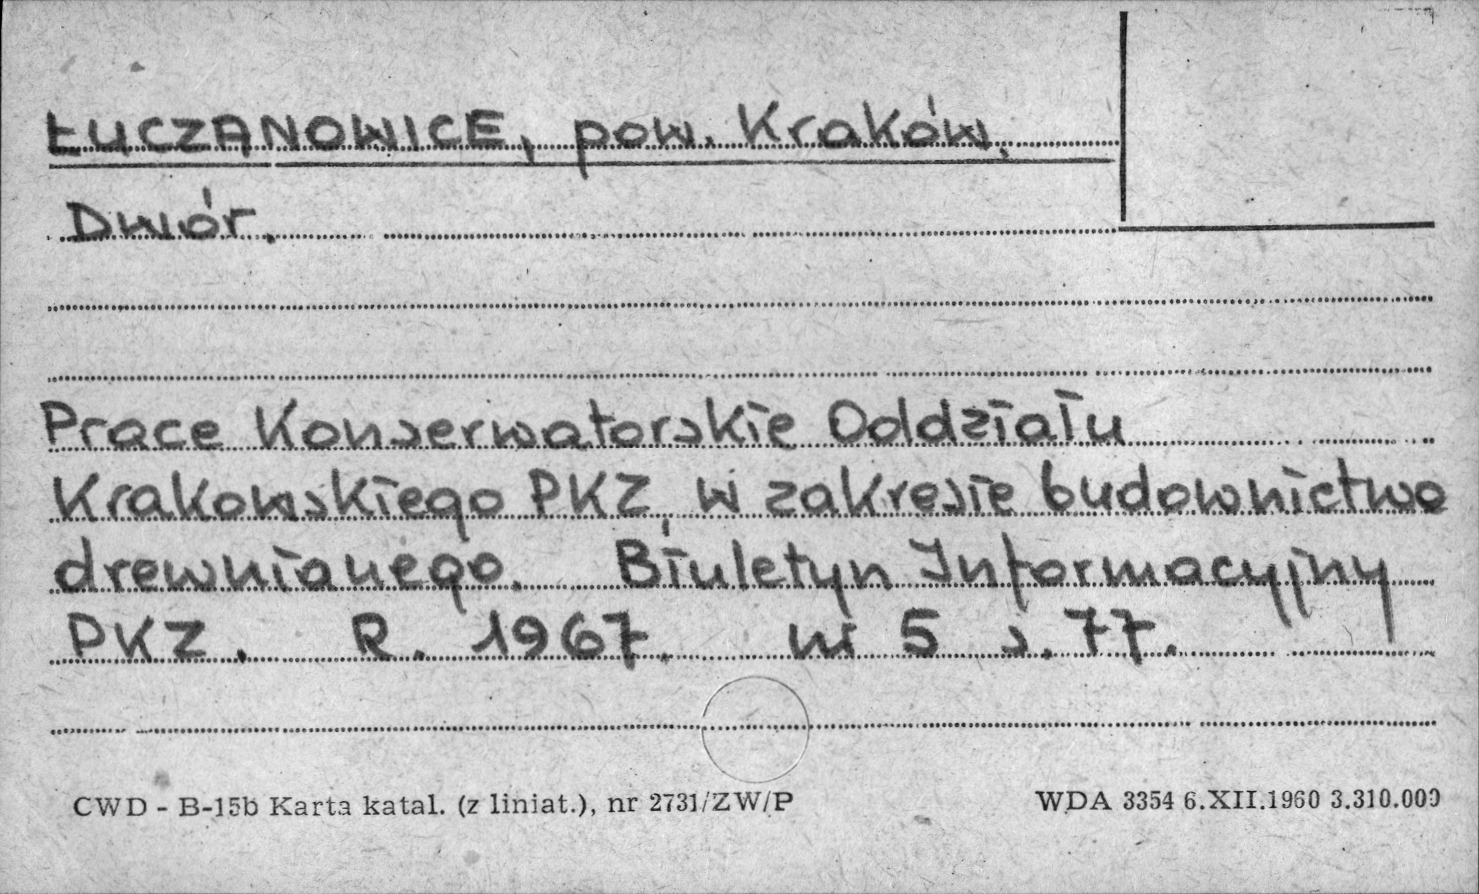 ŁUCZANOWICE, pow. Kraków.
Dwór.
Prace Konserwatorskie Oddziału
Krakowskiego PKZ, w zakresie budownictwa
drewnianego. Biuletyn Informacyjny
PKZ. R. 1967. nr 5 s. 77.
CWD - B-15b Karta katal. (z liniat.), nr 2731/ZW/P
WDA 3354 6.XII.1960 3.310.000